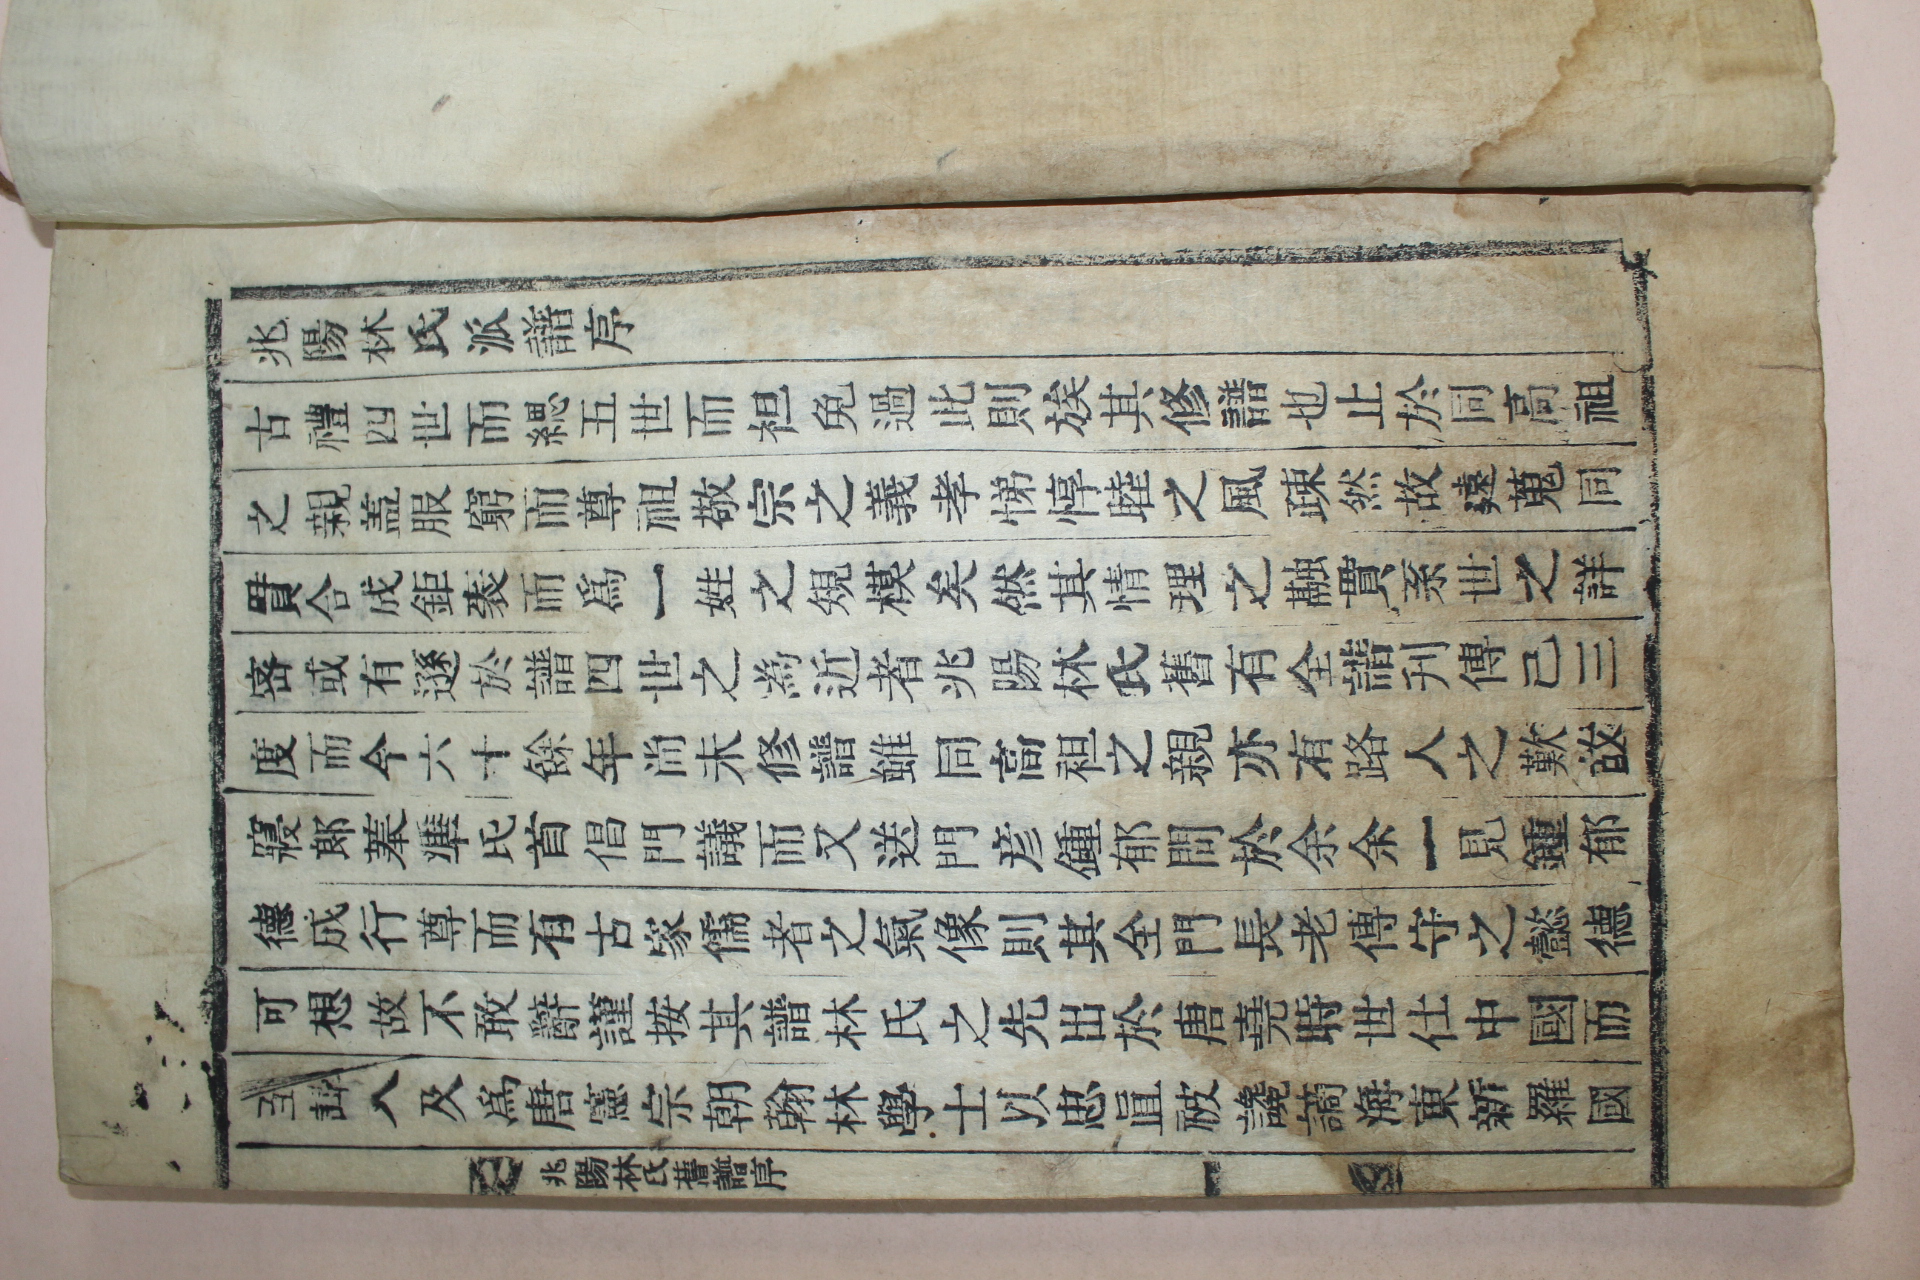 兆陽林氏派譜序
古禮四世而緦五世而袒免過此則族其修譜也止於同高祖
之親盖服窮而尊祖敬宗之義孝悌惇睦之風疎然故遠蒐同
貫合成鉅袠而爲一姓之䂓模矣然其情理之融貫系世之詳
宻或有遜於譜四世之為近者兆陽林氏舊有全譜刊傳已三
度而今六十餘年尚未修譜雖同高祖之親亦有路人之歎故
寢郎準氏首倡門議而又送門彦鍾郁問於余余一見鍾郁
德成行尊而有古家儒者之氣像則其全門長老傳守之懿德
可想故不敢辭謹按其譜林氏之先出於唐堯時世仕中國而
至諱八及爲唐憲宗朝翰林學士以忠直被讒謫海東新羅國
兆陽林氏舊譜序